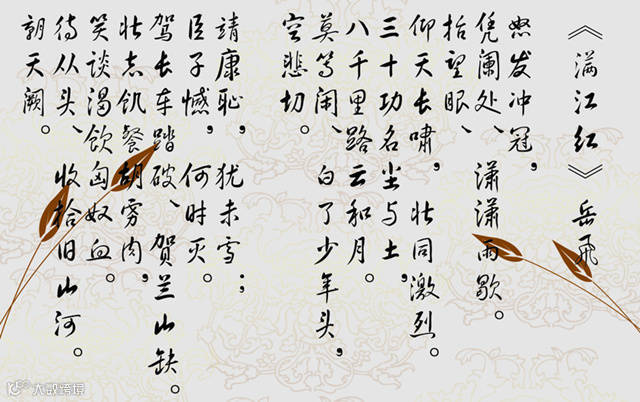 《满江红》岳飞
怒发冲冠,
凭阑处、潇潇雨歇。
抬望眼、
仰天长啸,壮同激烈。
三十功名尘与土,
八千里路云和月。
莫等闲、白了少年头,
空悲切。
靖康耻,犹未雪;
臣子憾,何时灭。
驾长车踏破、贺兰山缺。
壮志饥餐胡虏肉,
笑谈渴饮匈奴血。
待从头、收拾旧山河。
朝天阙。
大数跨境